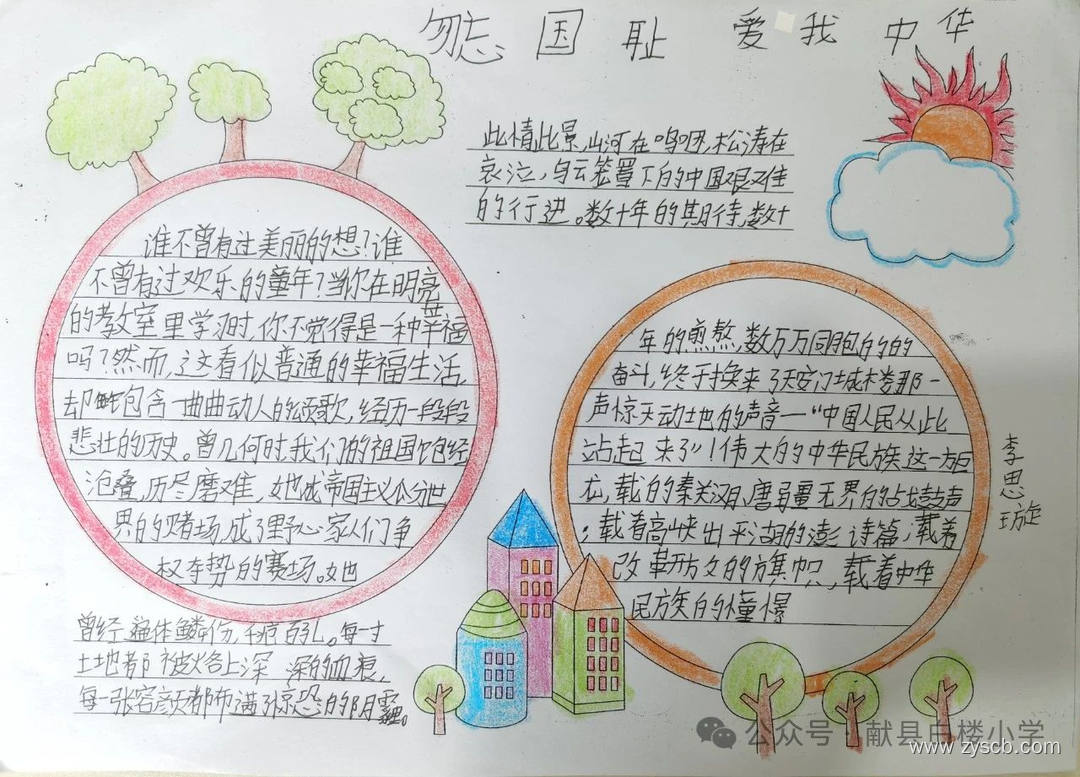 勿忘 国 耻 爱 我 中 华
谁不曾有过美丽的想?谁
不曾有过欢乐的童年?当你在明亮
的教室里学习时,你不觉得是一种幸福
吗?然而,这看似普通的幸福生活,
却包含一曲曲动人的颂歌,经历一段段
悲壮的历史。曾几何时,我们的祖国饱经
沧叠,历尽磨难,她成帝国主义瓜分世
界的赌场,成了野心家人们争
权夺势的赛场。她
曾经遍体鳞伤,千疮百孔。每一寸
土地都被烙上深深的血痕,
每一张容颜都布满惊恐的阴霾。
此情此景,山河在呜咽,松涛在
哀泣,乌云笼罩下的中国艰难
的行进。数十年的期待,数十
年的煎熬,数万万同胞的的
奋斗,终于换来了天安门城楼那一
声惊天动地的声音—“中国人民从此
站起来了”!伟大的中华民族这一方巨
龙,载的秦关汉月,唐量无界的战鼓声
;载着高峡出平湖的澎诗篇;载着
改革开放的旗帜,载着中华
民族的憧憬
李思
公众号·献县白楼小学
www.zyscb.com